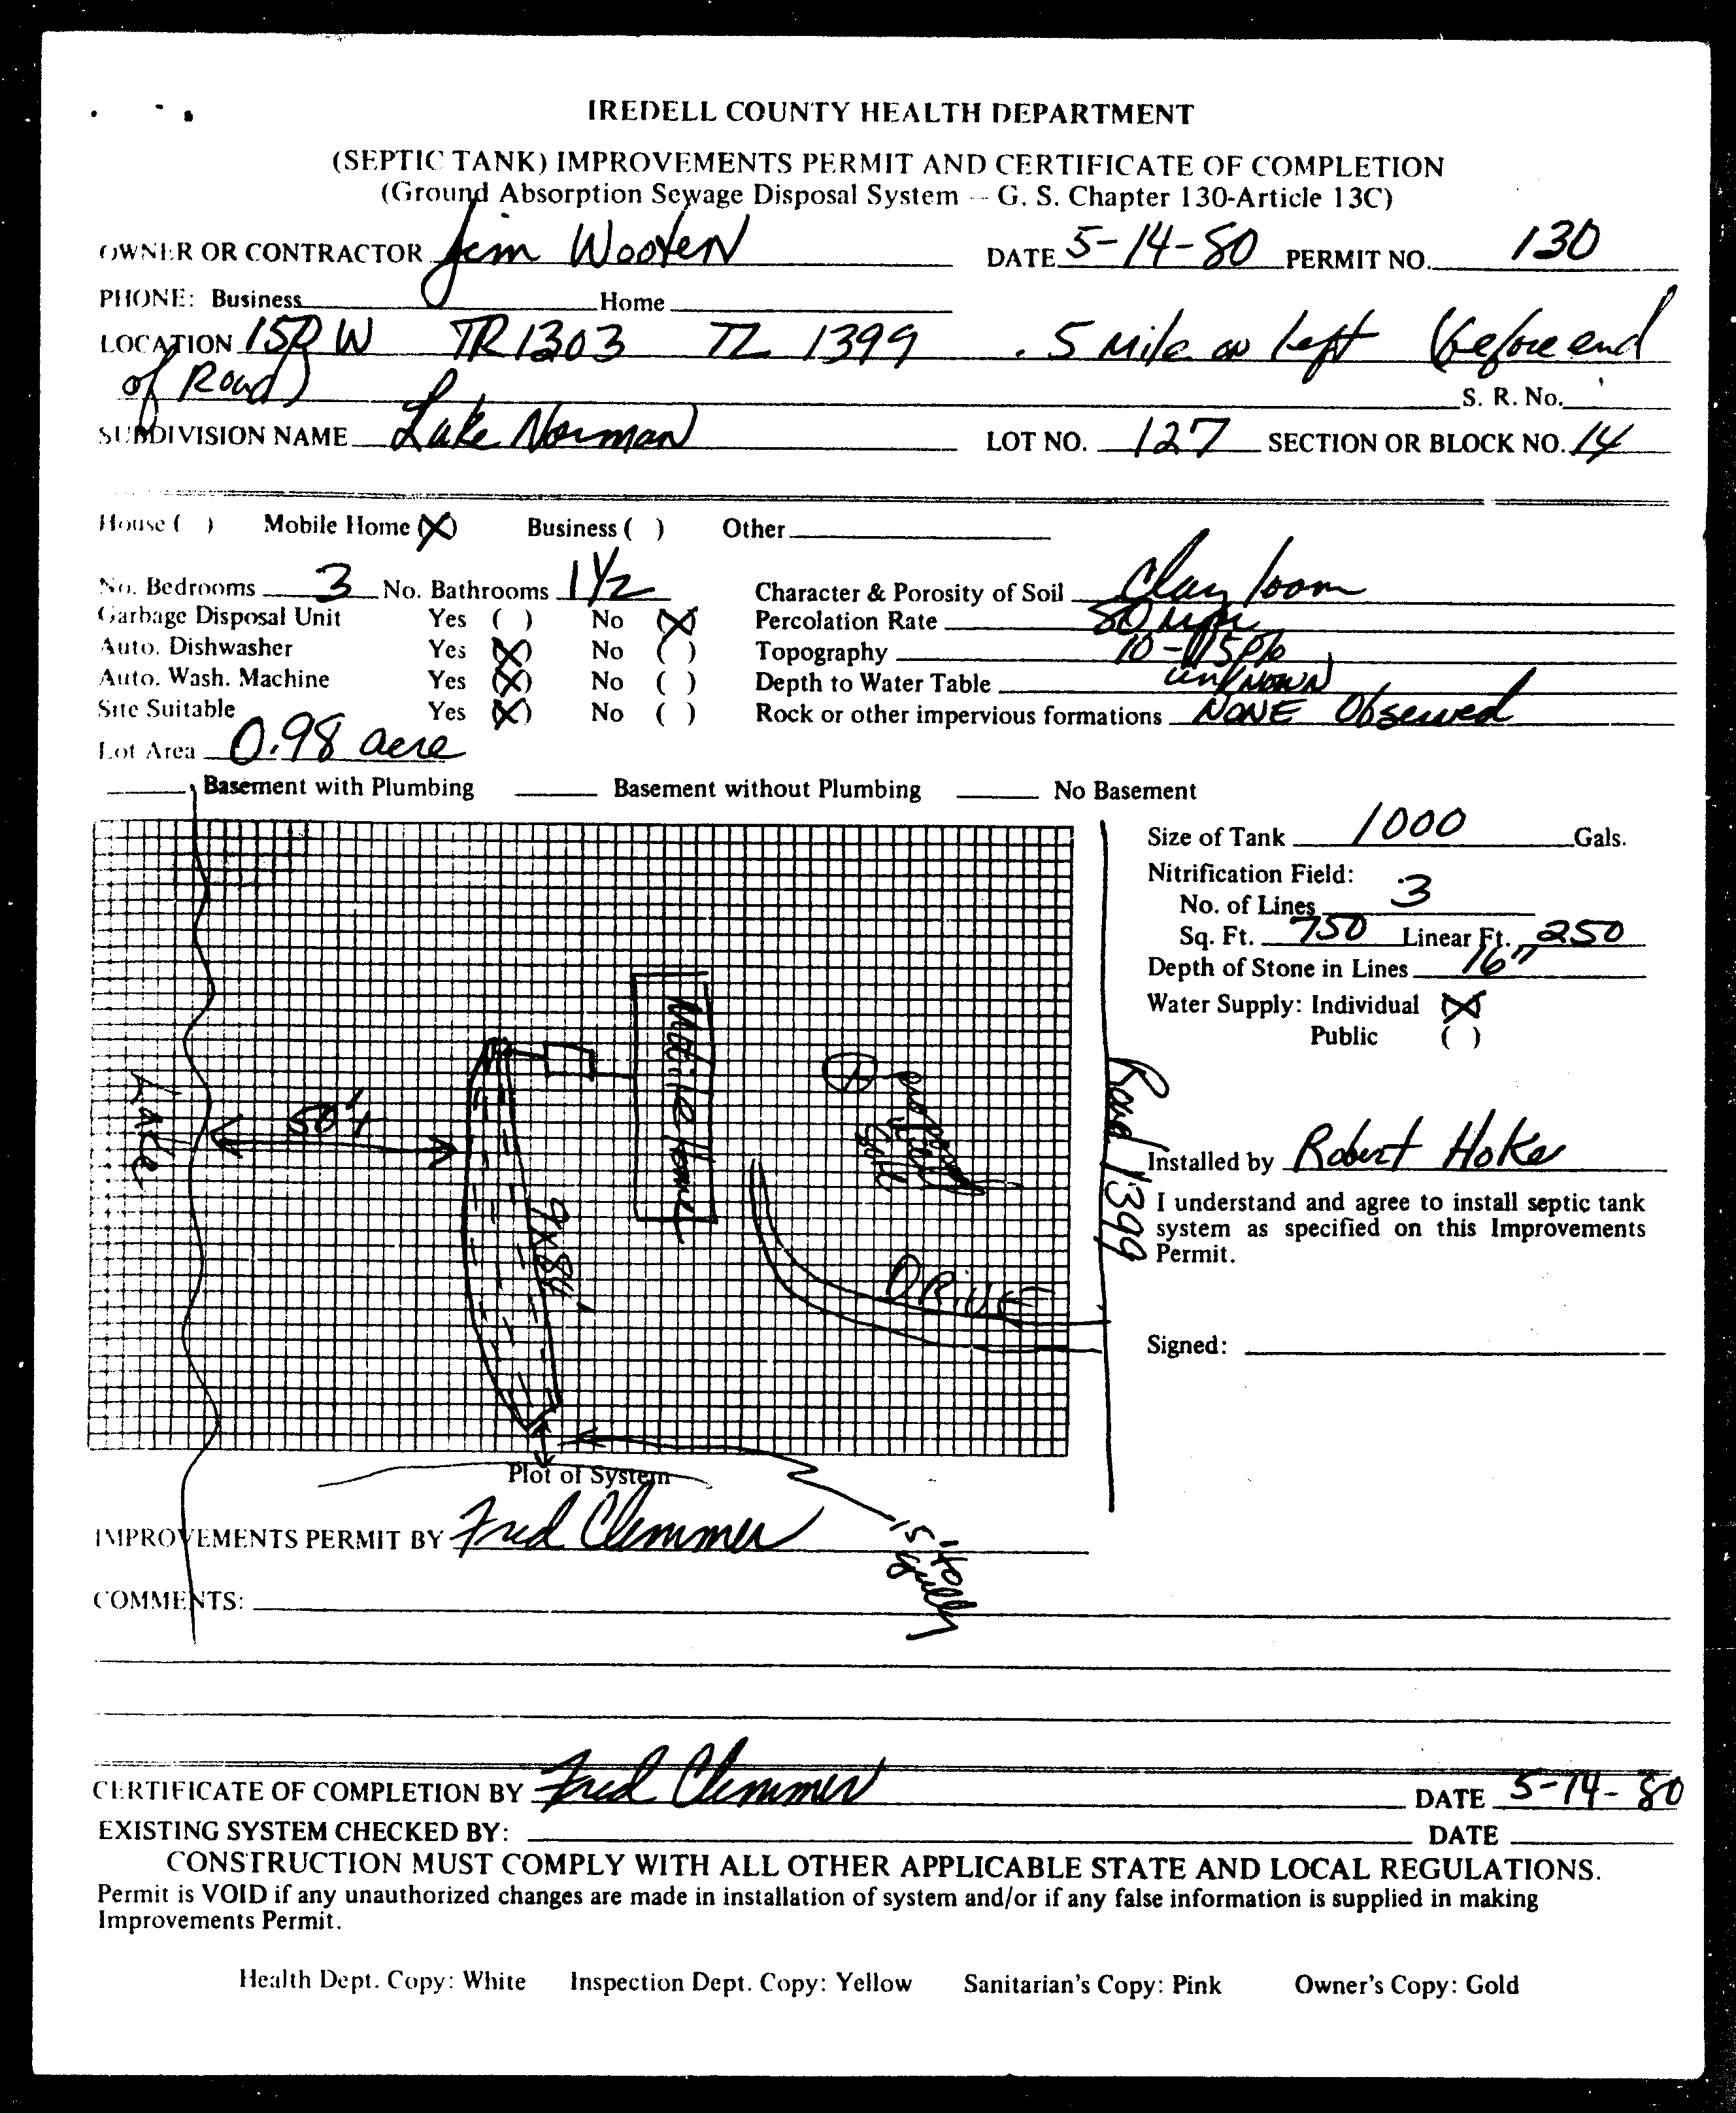 IREDELL COUNTY HEALTH DEPARTMENT
(SEPTIC TANK) IMPROVEMENTS PERMIT AND CERTIFICATE OF COMPLETION
(Ground Absorption Sewage Disposal System — G. S. Chapter 130-Article 13C)
OWNER OR CONTRACTOR Jim Wooten DATE 5-14-80 PERMIT NO. 130
PHONE: Business Home
LOCATION 150 W TR 1303 TL 1399 .5 Mile on left (before end
of Road)
S. R. No.
SUBDIVISION NAME Lake Norman LOT NO. 127 SECTION OR BLOCK NO. 14
House ( ) Mobile Home (X) Business ( ) Other
No. Bedrooms 3 No. Bathrooms 1 1/2 Character & Porosity of Soil Clay loom
Garbage Disposal Unit Yes ( ) No (X) Percolation Rate 80 mpi
Auto. Dishwasher Yes (X) No ( ) Topography 10-15%
Auto. Wash. Machine Yes (X) No ( ) Depth to Water Table unknown
Site Suitable Yes (X) No ( ) Rock or other impervious formations NONE Observed
Lot Area 0.98 acre
Basement with Plumbing Basement without Plumbing No Basement
Size of Tank 1000 Gals.
Nitrification Field:
No. of Lines 3
Sq. Ft. 750 Linear Ft. 250
Depth of Stone in Lines 16"
Water Supply: Individual (X)
Public ( )
Lake
50'+
9x84'
Mobile Home
DRIVE
Road 1399
Installed by Robert Hoke
I understand and agree to install septic tank
system as specified on this Improvements
Permit.
Signed:
Plot of System
15' to
gully
IMPROVEMENTS PERMIT BY Fred Clemmer
COMMENTS:
CERTIFICATE OF COMPLETION BY Fred Clemmer DATE 5-14-80
EXISTING SYSTEM CHECKED BY: DATE
CONSTRUCTION MUST COMPLY WITH ALL OTHER APPLICABLE STATE AND LOCAL REGULATIONS.
Permit is VOID if any unauthorized changes are made in installation of system and/or if any false information is supplied in making
Improvements Permit.
Health Dept. Copy: White Inspection Dept. Copy: Yellow Sanitarian's Copy: Pink Owner's Copy: Gold